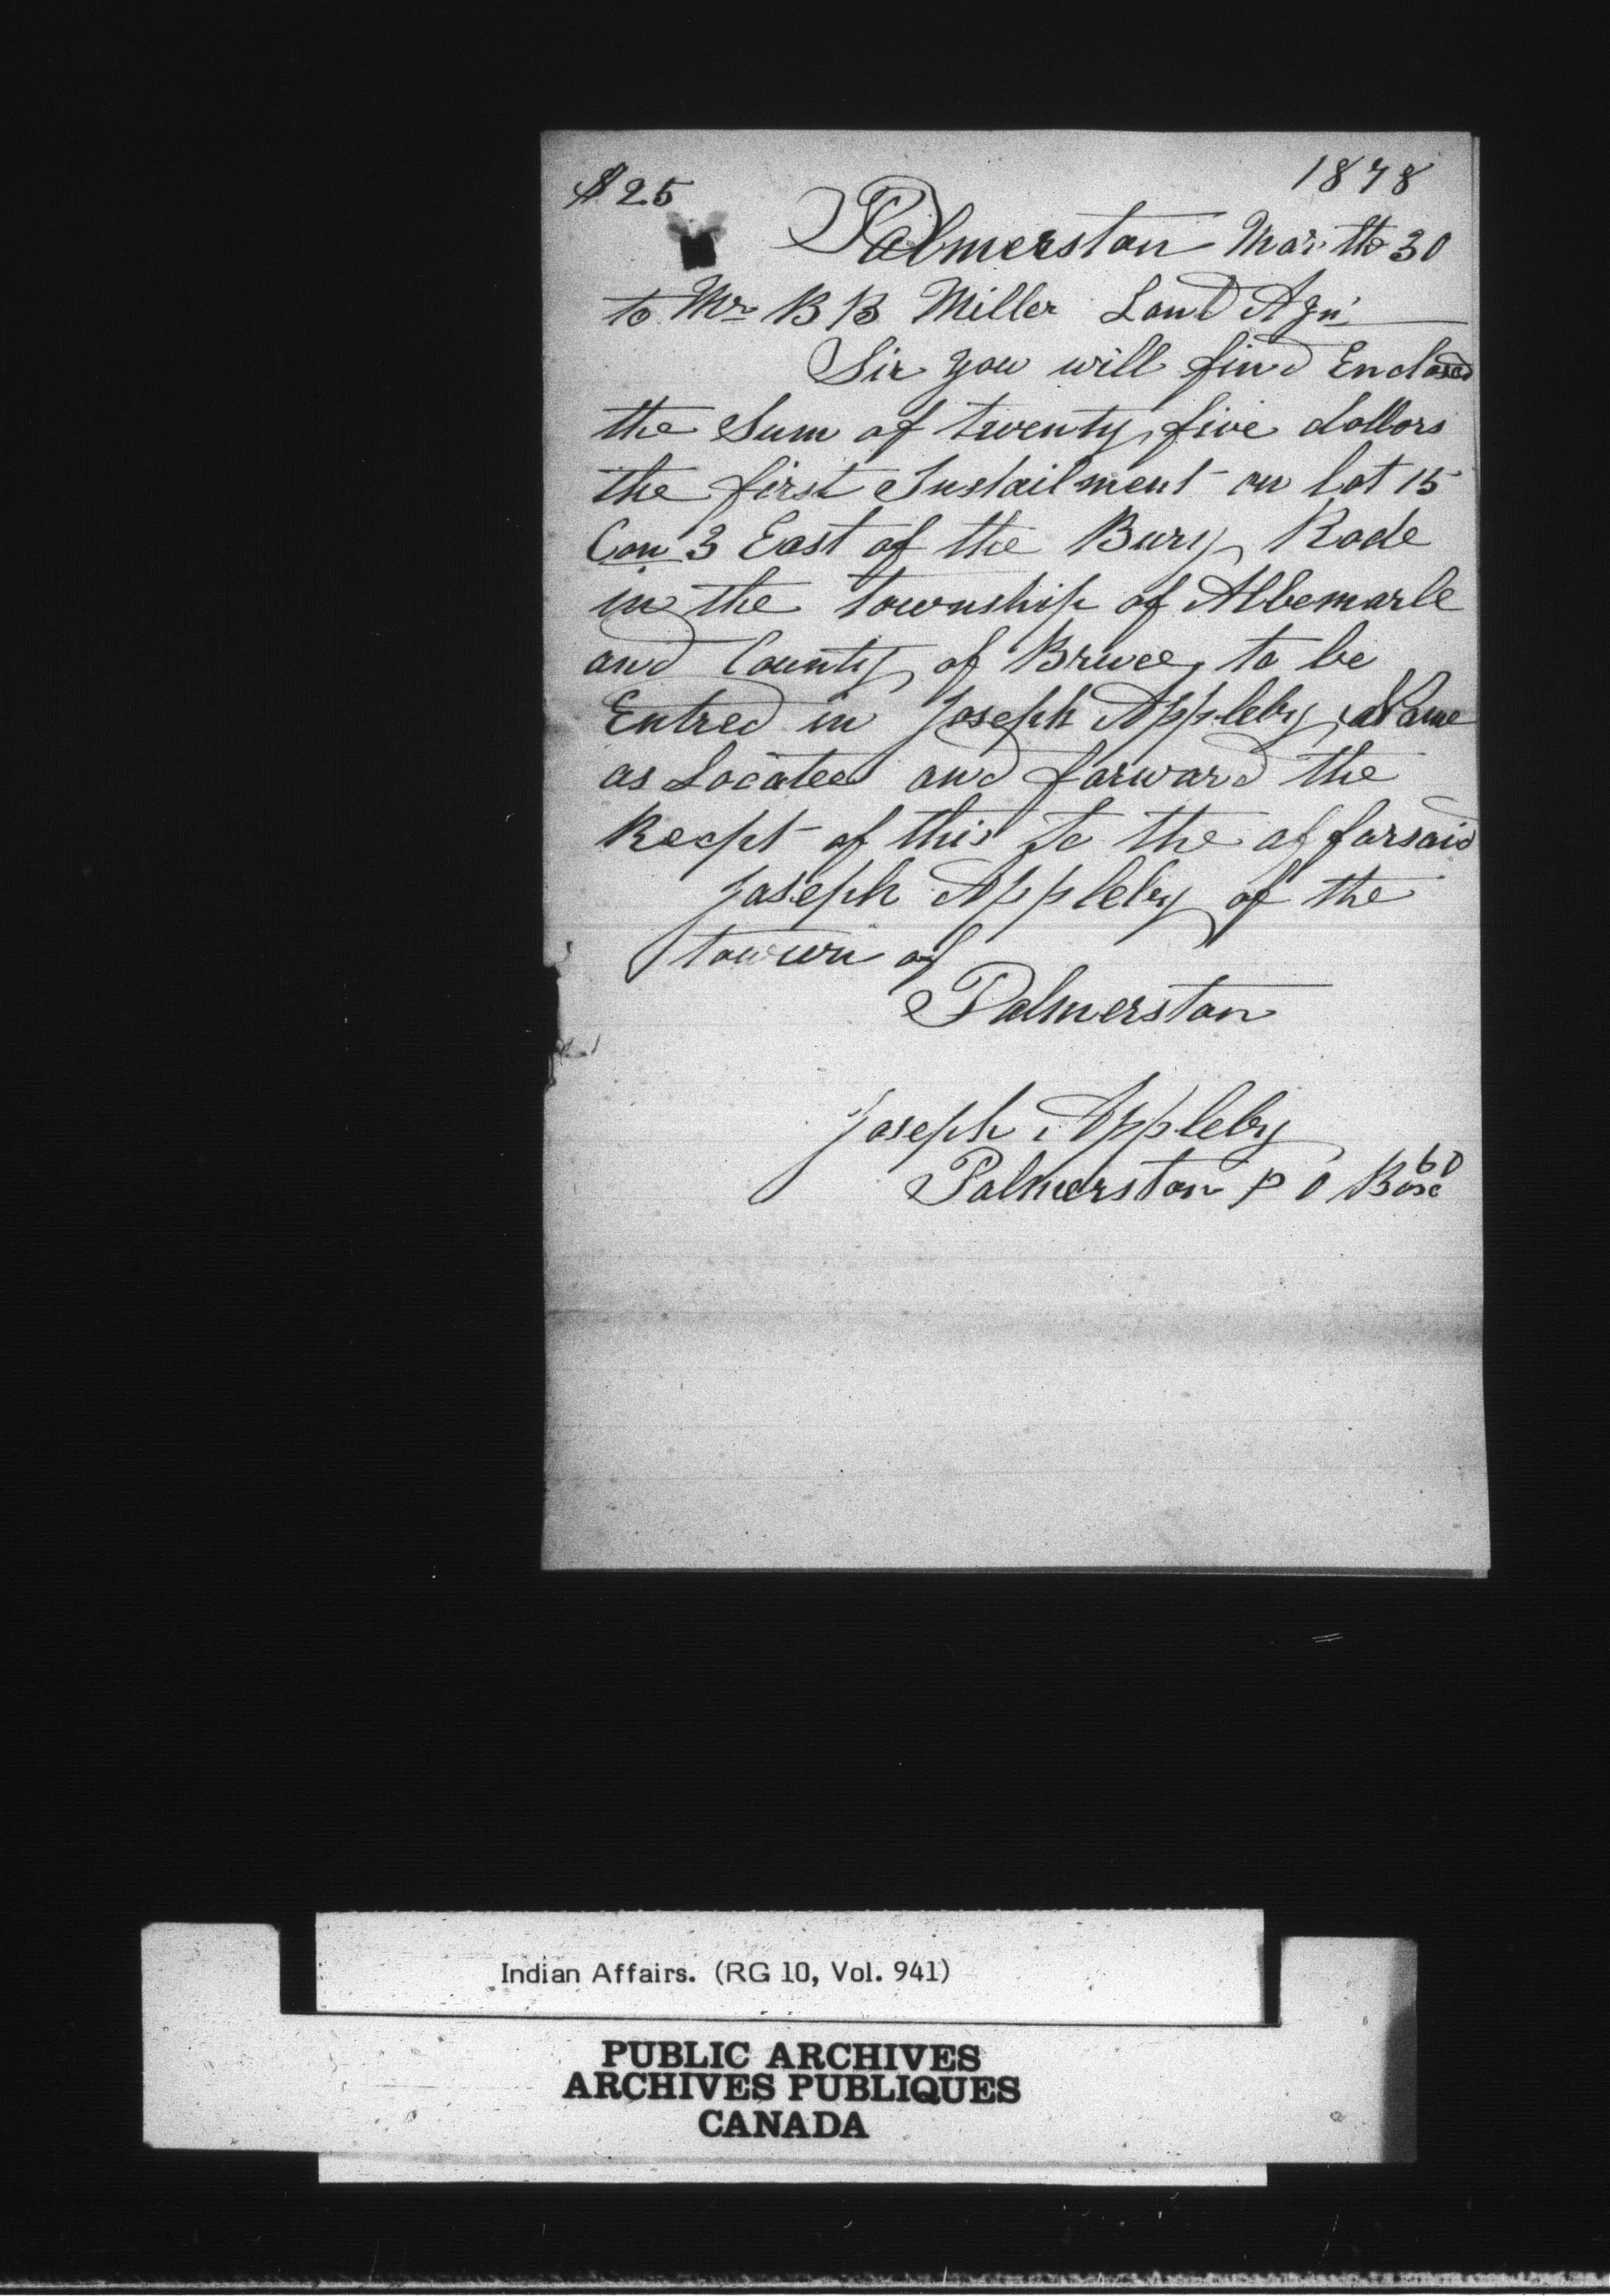 $25
1878
Palmerston Mar the 30
to Mr B B Miller Land Agn
Sir you will find Enclosed
the Sum of twenty five dollors
the first Instailment on lot 15
Con 3 East of the Bury Rode
in the township of Albemarle
and County of Bruce to be
Entred in Joseph Appleby Name
as Locatee and forward the
Recpt of this to the afforsaid
Joseph Appleby of the
towwn of
Palmerston
Joseph Appleby
Palmerston P O Box 60
Indian Affairs. (RG 10, Vol. 941)
PUBLIC ARCHIVES
ARCHIVES PUBLIQUES
CANADA